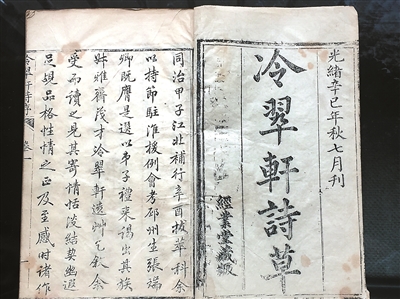 光緒辛巳年秋七月刊
冷翠軒詩草
經業堂藏
同治甲子江北補行辛酉拔萃科余
以持節駐淮援例會考邳州生張端
卿既膺是選以弟子禮来謁出其族
雅齋茂才冷翠軒艸乞敘余
受而讀之見其寄情恬淡結契幽遐
足覘品格性情之正及至感時諸作
冷翠軒詩草 卷一